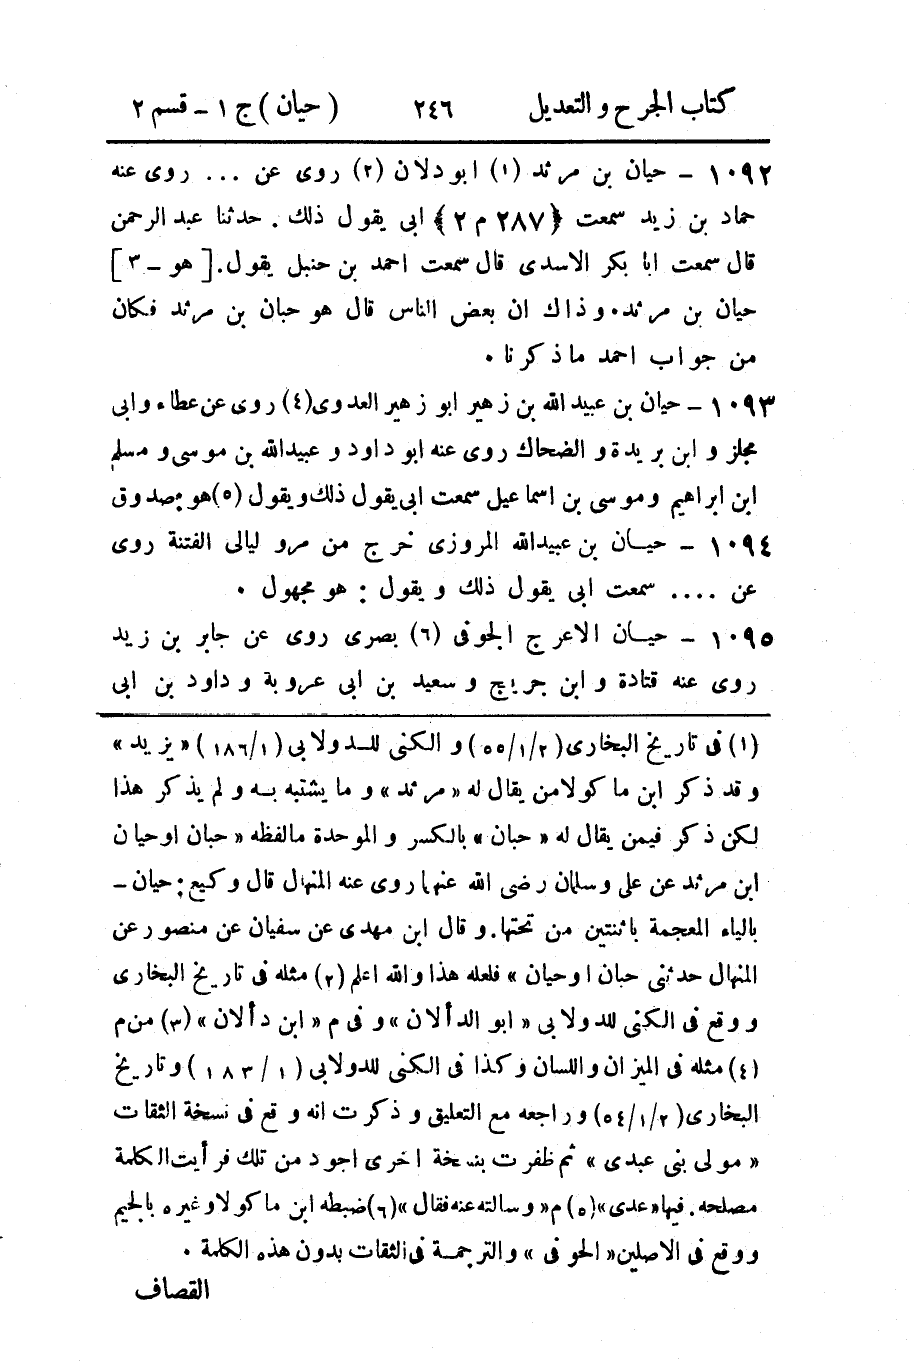 كتاب الجرح والتعديل ٢٤٦ ( حيان ) ج ١ - قسم ٢
١٠٩٢ - حيان بن مرثد (١) ابو دلان (٢) روى عن ... روى عنه
حماد بن زيد سمعت ﴿٢٨٧ م ٢﴾ ابى يقول ذلك . حدثنا عبد الرحمن
قال سمعت ابا بكر الاسدى قال سمعت احمد بن حنبل يقول. [ هو - ٣ ]
حيان بن مرثد. وذاك ان بعض الناس قال هو حبان بن مرثد فكان
من جواب احمد ما ذكرنا .
١٠٩٣ - حيان بن عبيد الله بن زهير ابو زهير العدوى (٤) روى عن عطاء وابى
مجلز و ابن بريدة و الضحاك روى عنه ابو داود و عبيدالله بن موسى و مسلم
ابن ابراهيم وموسى بن اسماعيل سمعت ابى يقول ذلك ويقول (٥) هو صدوق
١٠٩٤ - حيان بن عبيدالله المروزى خرج من مرو ليالى الفتنة روى
عن .... سمعت ابى يقول ذلك و يقول : هو مجهول .
١٠٩٥ - حيان الاعرج الجوفى (٦) بصرى روى عن جابر بن زيد
روى عنه قتادة و ابن جريج و سعيد بن ابى عروبة و داود بن ابى
(١) فى تاريخ البخارى (٥٥/١/٢) و الكنى للدولابى (١٨٦/١) « يزيد »
وقد ذكر ابن ماكولا من يقال له « مرثد » و ما يشتبه به و لم يذكر هذا
لكن ذكر فيمن يقال له « حبان » بالكسر و الموحدة ما لفظه « حبان او حيان
ابن مرثد عن على و سلمان رضى الله عنهما روى عنه المنهال قال وكيع : حيان -
بالياء المعجمة باثنتين من تحتها. و قال ابن مهدى عن سفيان عن منصور عن
المنهال حدثنى حبان او حيان » فلعله هذا والله اعلم (٢) مثله فى تاريخ البخارى
ووقع فى الكنى للدولابى « ابو الدألان » و فى م « ابن دألان » (٣) من م
(٤) مثله فى الميزان واللسان وكذا فى الكنى للدولابى (١ / ١٨٣) وتاريخ
البخارى (٥٤/١/٢) و راجعه مع التعليق و ذكرت انه وقع فى نسخة الثقات
« مولى بنى عبدى » ثم ظفرت بنسخة اخرى اجود من تلك فرأيت الكلمة
مصلحه . فيها « عدى » (٥) م « وسالته عنه فقال » (٦) ضبطه ابن ماكولا وغيره بالجيم
ووقع فى الاصلين « الحوفى » والترجمة فى الثقات بدون هذه الكلمة .
القصاف